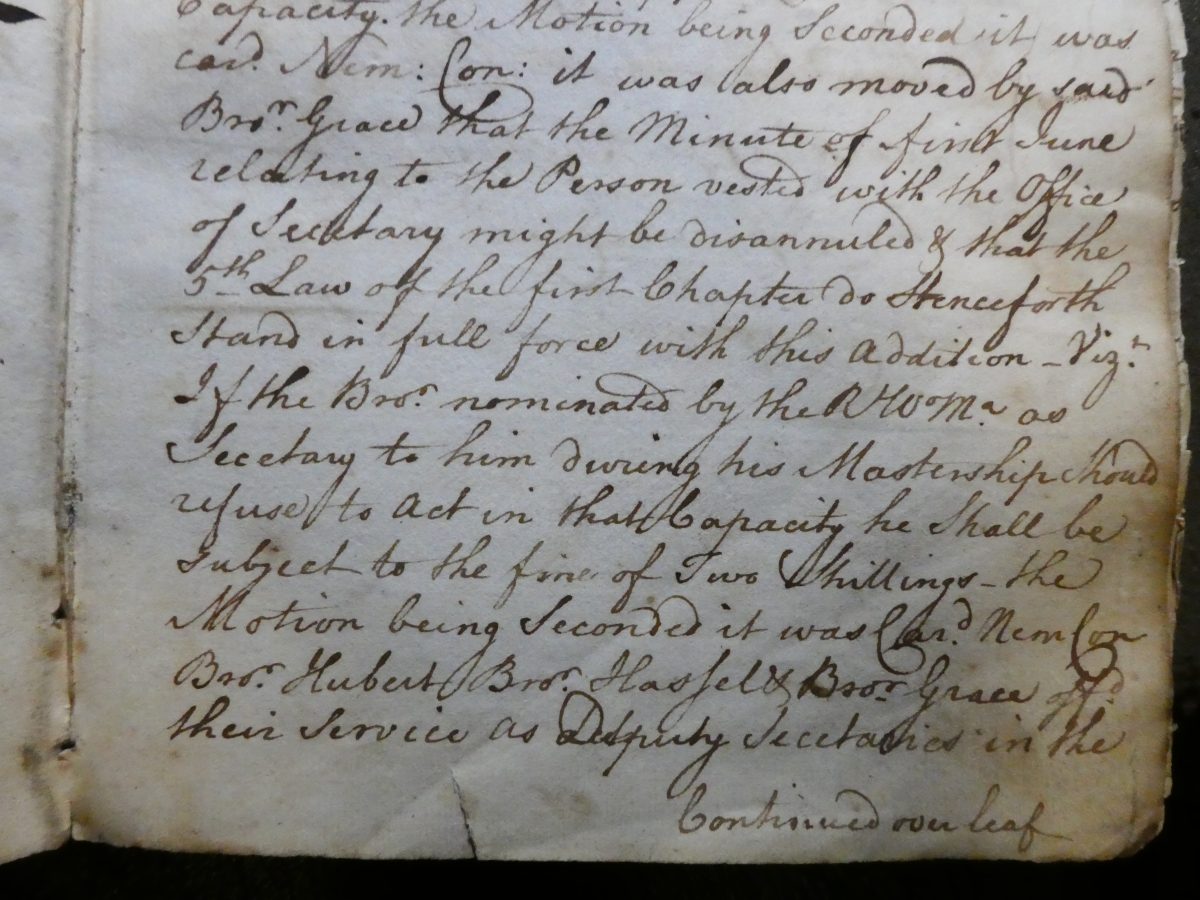 Capacity. the Motion being Seconded it was
card. Nem: Con: it was also moved by said
Bror. Grace that the Minute of first June
relating to the Person vested with the Office
of Secetary might be disannuled & that the
5th Law of the first Chapter do Henceforth
Stand in full force with this Addition - Vizt.
If the Bror. nominated by the R W Ma as
Secetary to him dureing his Mastership should
refuse to Act in that Capacity he Shall be
subject to the fine of Two Shillings - the
Motion being Seconded it was Card. Nem Con
Bror. Hubert Bror. Hassel & Bror. Grace offd.
their Service as Deputy Secetaries in the
Continued over leaf